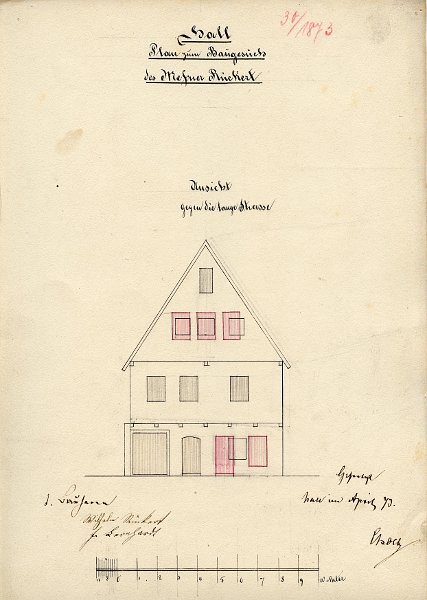 30/1873
Hall
Plan zum Baugesuch
des Meßner Rückert
Ansicht
gegen die lange Strasse
Gefertigt
Hall im April 73.
d. Bauherrn
Wilhelm Rückert
1 2 3 4 5 6 7 8 9